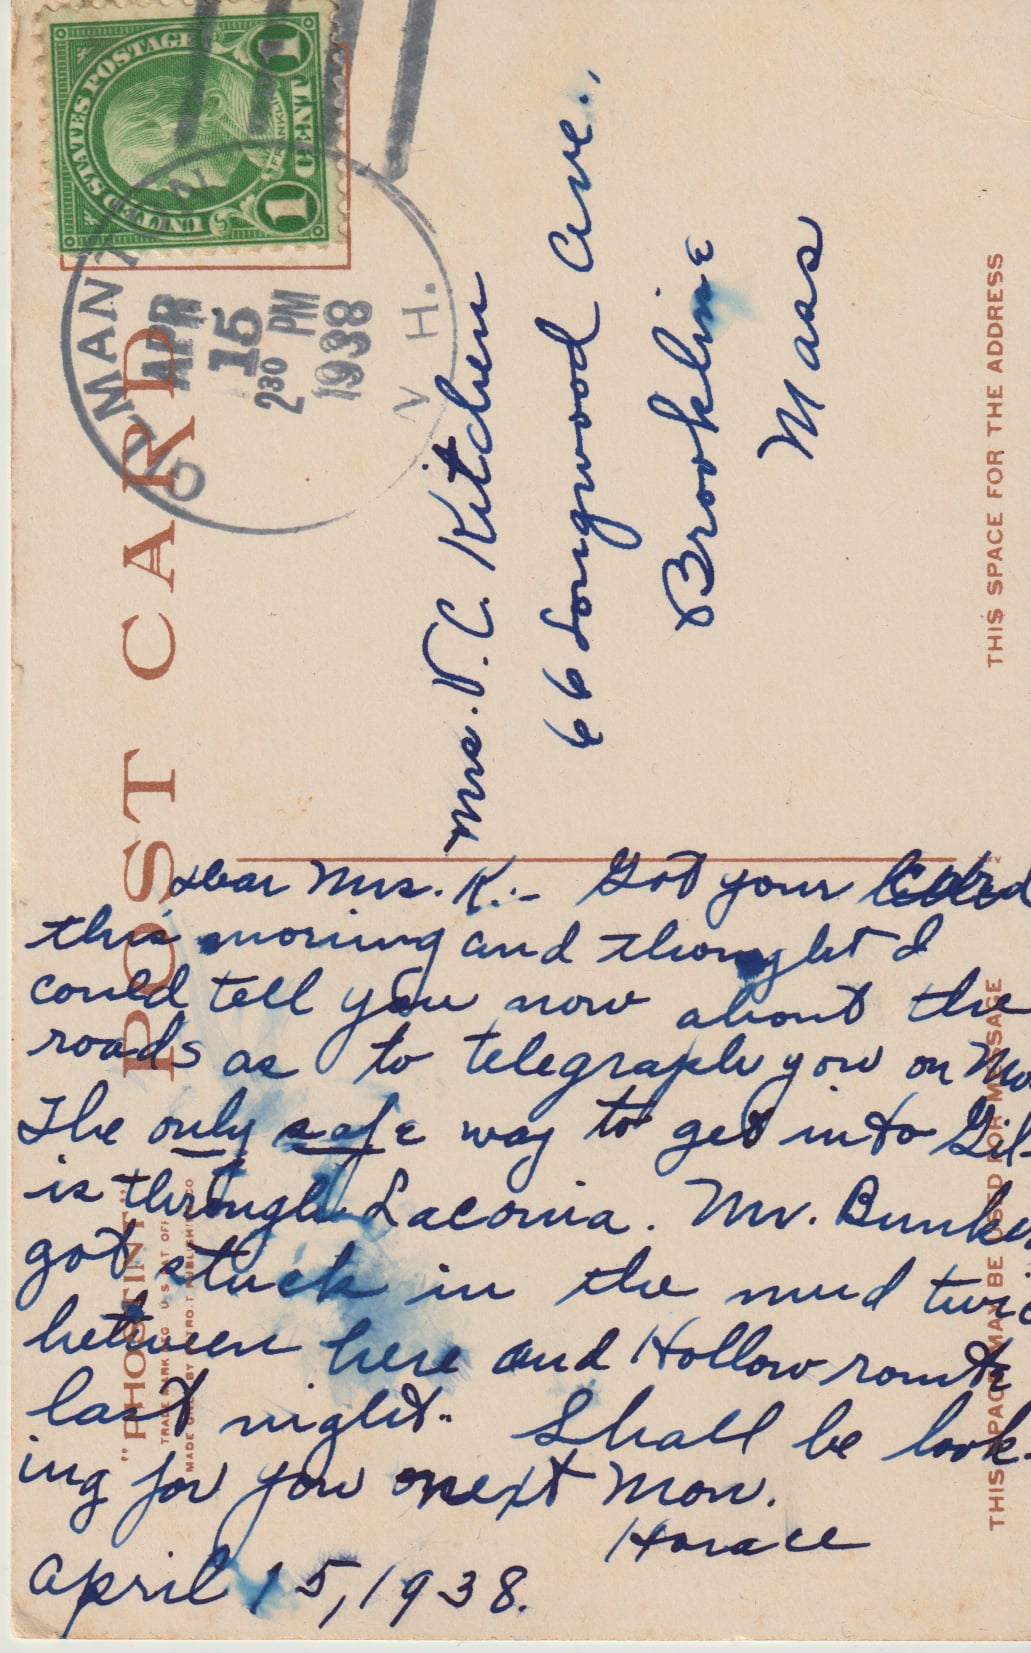 UNITED STATES POSTAGE
FRANKLIN
1 CENT 1
GILMANTON
APR
15
2 30 PM
1938
N. H.
POST CARD
Mrs. V. C. Kitchen
66 Longwood Ave.,
Brookline
Mass
THIS SPACE FOR THE ADDRESS
Dear Mrs. K.- Got your Card
this morning and thought I
could tell you now about the
roads as to telegraph you on Mo
The only safe way to get into Gil-
is through Laconia. Mr. Bunke
got stuck in the mud twic
between here and Hollow route
last night. Shall be look-
ing for you next Mon.
Horace
April 15, 1938.
"PHOSTINT"
THIS SPACE MAY BE USED FOR MESSAGE